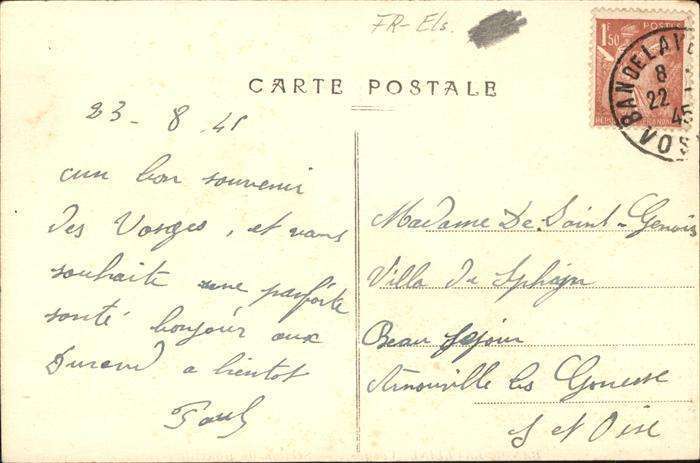 FR-Els.
CARTE POSTALE
1F50
POSTES
BAN DE LAVE
8
22
45
VOS
23 - 8. 45
un bon souvenir
des Vosges, et vous
souhaite une parfaite
santé bonjour aux
Durand a bientot
Paul
Madame De Saint-Genois
Villa du Sphinx
Beau Sejour
Arnouville les Gonesse
S et Oise